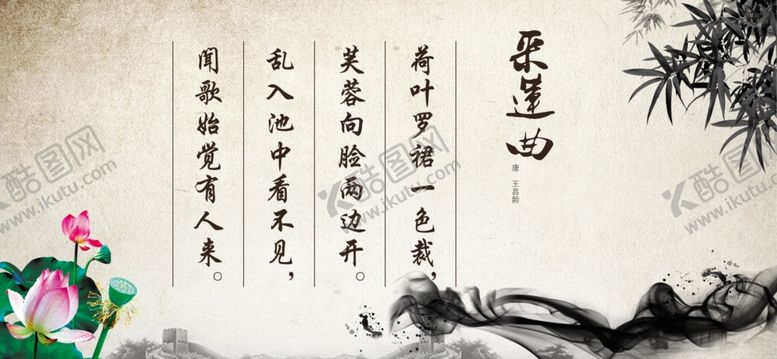 采莲曲
唐 王昌龄
荷叶罗裙一色裁，
芙蓉向脸两边开。
乱入池中看不见，
闻歌始觉有人来。
酷图网
www.ikutu.com
酷图网
www.ikutu.com
酷图网
www.ikutu.com
酷图网
www.ikutu.com